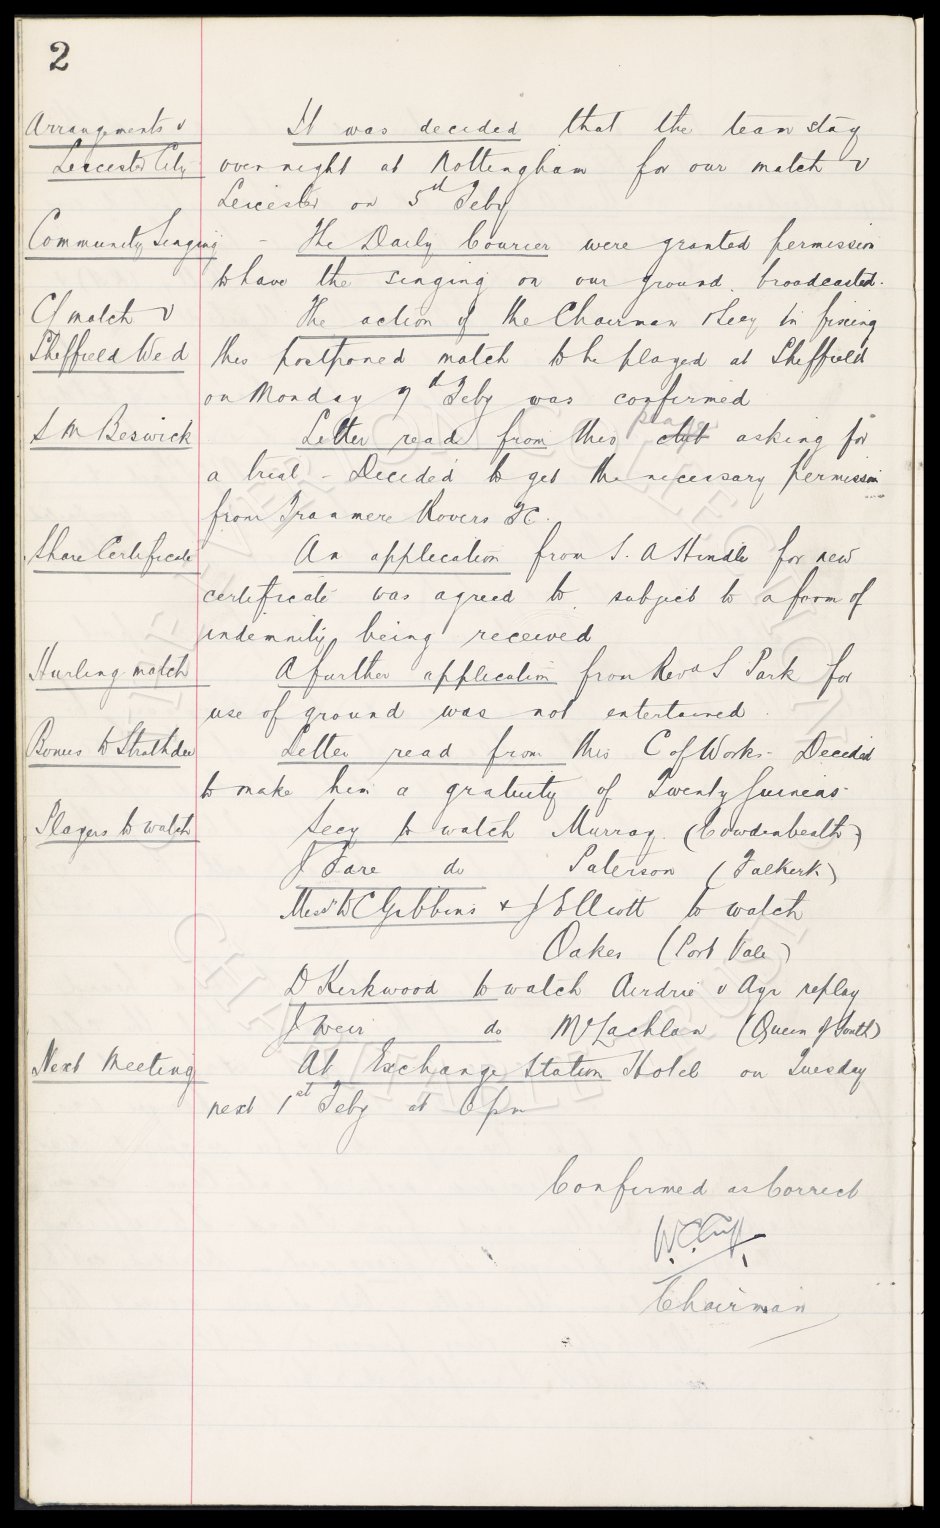 2
Arrangements v It was decided that the team stay
Leicester City over night at Nottingham for our match v
Leicester on 5th Feby
Community Singing - The Daily Courier were granted permission
to have the singing on our ground broadcasted.
CL match v The action of the Chairman & Secy in fixing
Sheffield Wed this postponed match to be played at Sheffield
on Monday 7th Feby was confirmed
player
S M Beswick Letter read from this club asking for
a trial - Decided to get the necessary permission
from Tranmere Rovers FC.
Share Certificate An application from S. A Hindle for new
certificate was agreed to subject to a form of
indemnity being received
Hurling match A further application from Revd S Park for
use of ground was not entertained
Bonus to Strathdee Letter read from this C of Works - Decided
to make him a gratuity of Twenty Guineas
Players to watch Secy to watch Murray. (Cowdenbeath)
J Fare do Paterson (Falkirk)
Messrs W C Gibbins & J Elliott to watch
Oakes (Port Vale)
D Kirkwood to watch Airdrie v Ayr replay
J Weir do McLachlan (Queen of South)
Next Meeting At Exchange Station Hotel on Tuesday
next 1st Feby at 6 pm
Confirmed as Correct
W.C. Cuff
Chairman
EVERTON COLLECTION
CHARITABLE TRUST